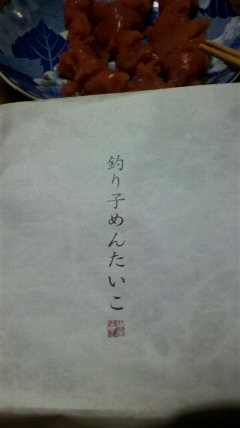 釣り子めんたいこ